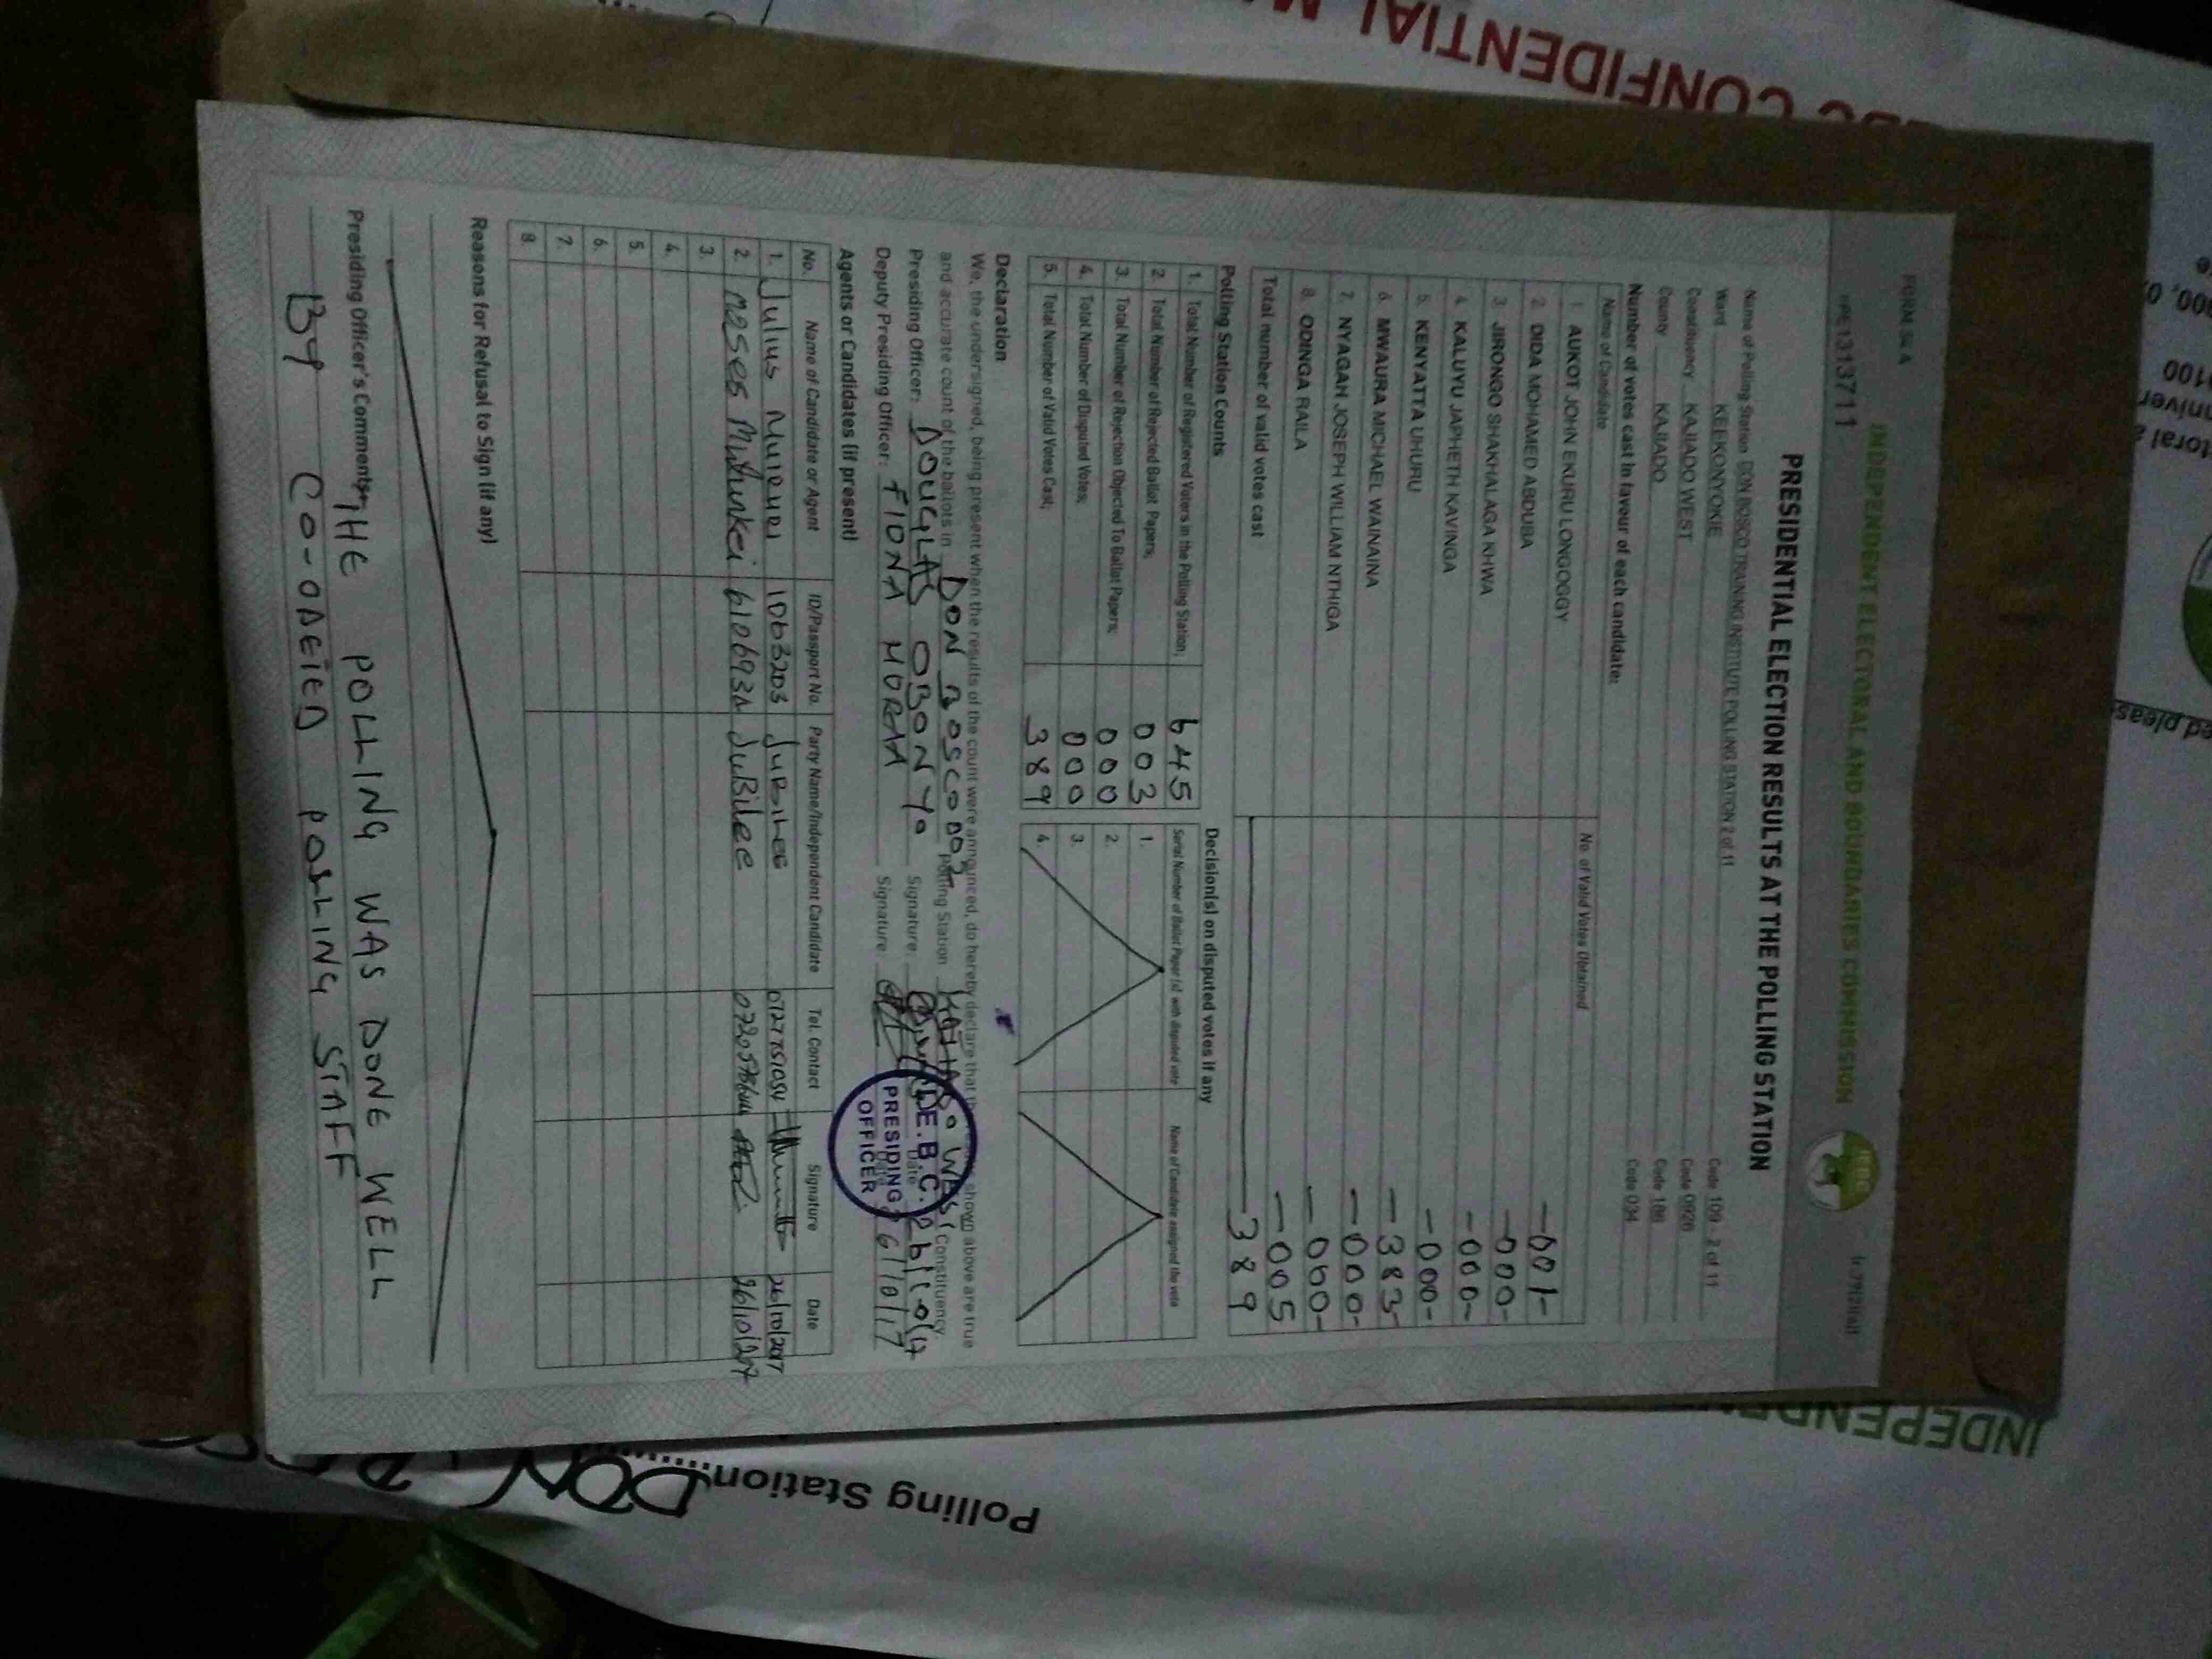 FORM 34 A
INDEPENDENT ELECTORAL AND BOUNDARIES COMMISSION
IEBC
1313711
PRESIDENTIAL ELECTION RESULTS AT THE POLLING STATION
Name of Polling Station DON BOSCO TRAINING INSTITUTE POLLING STATION 2 of 11 Code 109 - 2 of 11
Ward KEEKONYOKIE Code 0920
Constituency KAJIADO WEST Code 186
County KAJIADO Code 034
Number of votes cast in favour of each candidate:
Name of Candidate No. of Valid Votes Obtained
1. AUKOT JOHN EKURU LONGOGGY -001-
2. DIDA MOHAMED ABDUBA -000-
3. JIRONGO SHAKHALAGA KHWA -000-
4. KALUYU JAPHETH KAVINGA -000-
5. KENYATTA UHURU -383-
6. MWAURA MICHAEL WAINAINA -000-
7. NYAGAH JOSEPH WILLIAM NTHIGA -000-
8. ODINGA RAILA -005
Total number of valid votes cast 389
Polling Station Counts
1. Total Number of Registered Voters in the Polling Station; 645
2. Total Number of Rejected Ballot Papers; 003
3. Total Number of Rejection Objected To Ballot Papers; 000
4. Total Number of Disputed Votes; 000
5. Total Number of Valid Votes Cast; 389
Decision(s) on disputed votes if any
Serial Number of Ballot Paper (s) with disputed vote Name of Candidate assigned the vote
1.
2.
3.
4.
Declaration
We, the undersigned, being present when the results of the count were announced, do hereby declare that the shown above are true
and accurate count of the ballots in DON BOSCO 002 Polling Station KAJIADO WEST Constituency
Presiding Officer: DOUGLAS OBONYO Signature: Date 26/10/17
Deputy Presiding Officer: FIONA MORAA Signature 26/10/17
PRESIDING
OFFICER
Agents or Candidates (if present)
No. Name of Candidate or Agent ID/Passport No. Party Name/Independent Candidate Tel. Contact Signature Date
1. Julius JUBILEE 26/10/2017
2. Moses JuBilee 26/10/2017
3.
4.
5.
6.
7.
8.
Reasons for Refusal to Sign (if any)
Presiding Officer's Comments: THE POLLING WAS DONE WELL
BY CO-ODEIED POLLING STAFF
CONFIDENTIAL
Polling Station DON